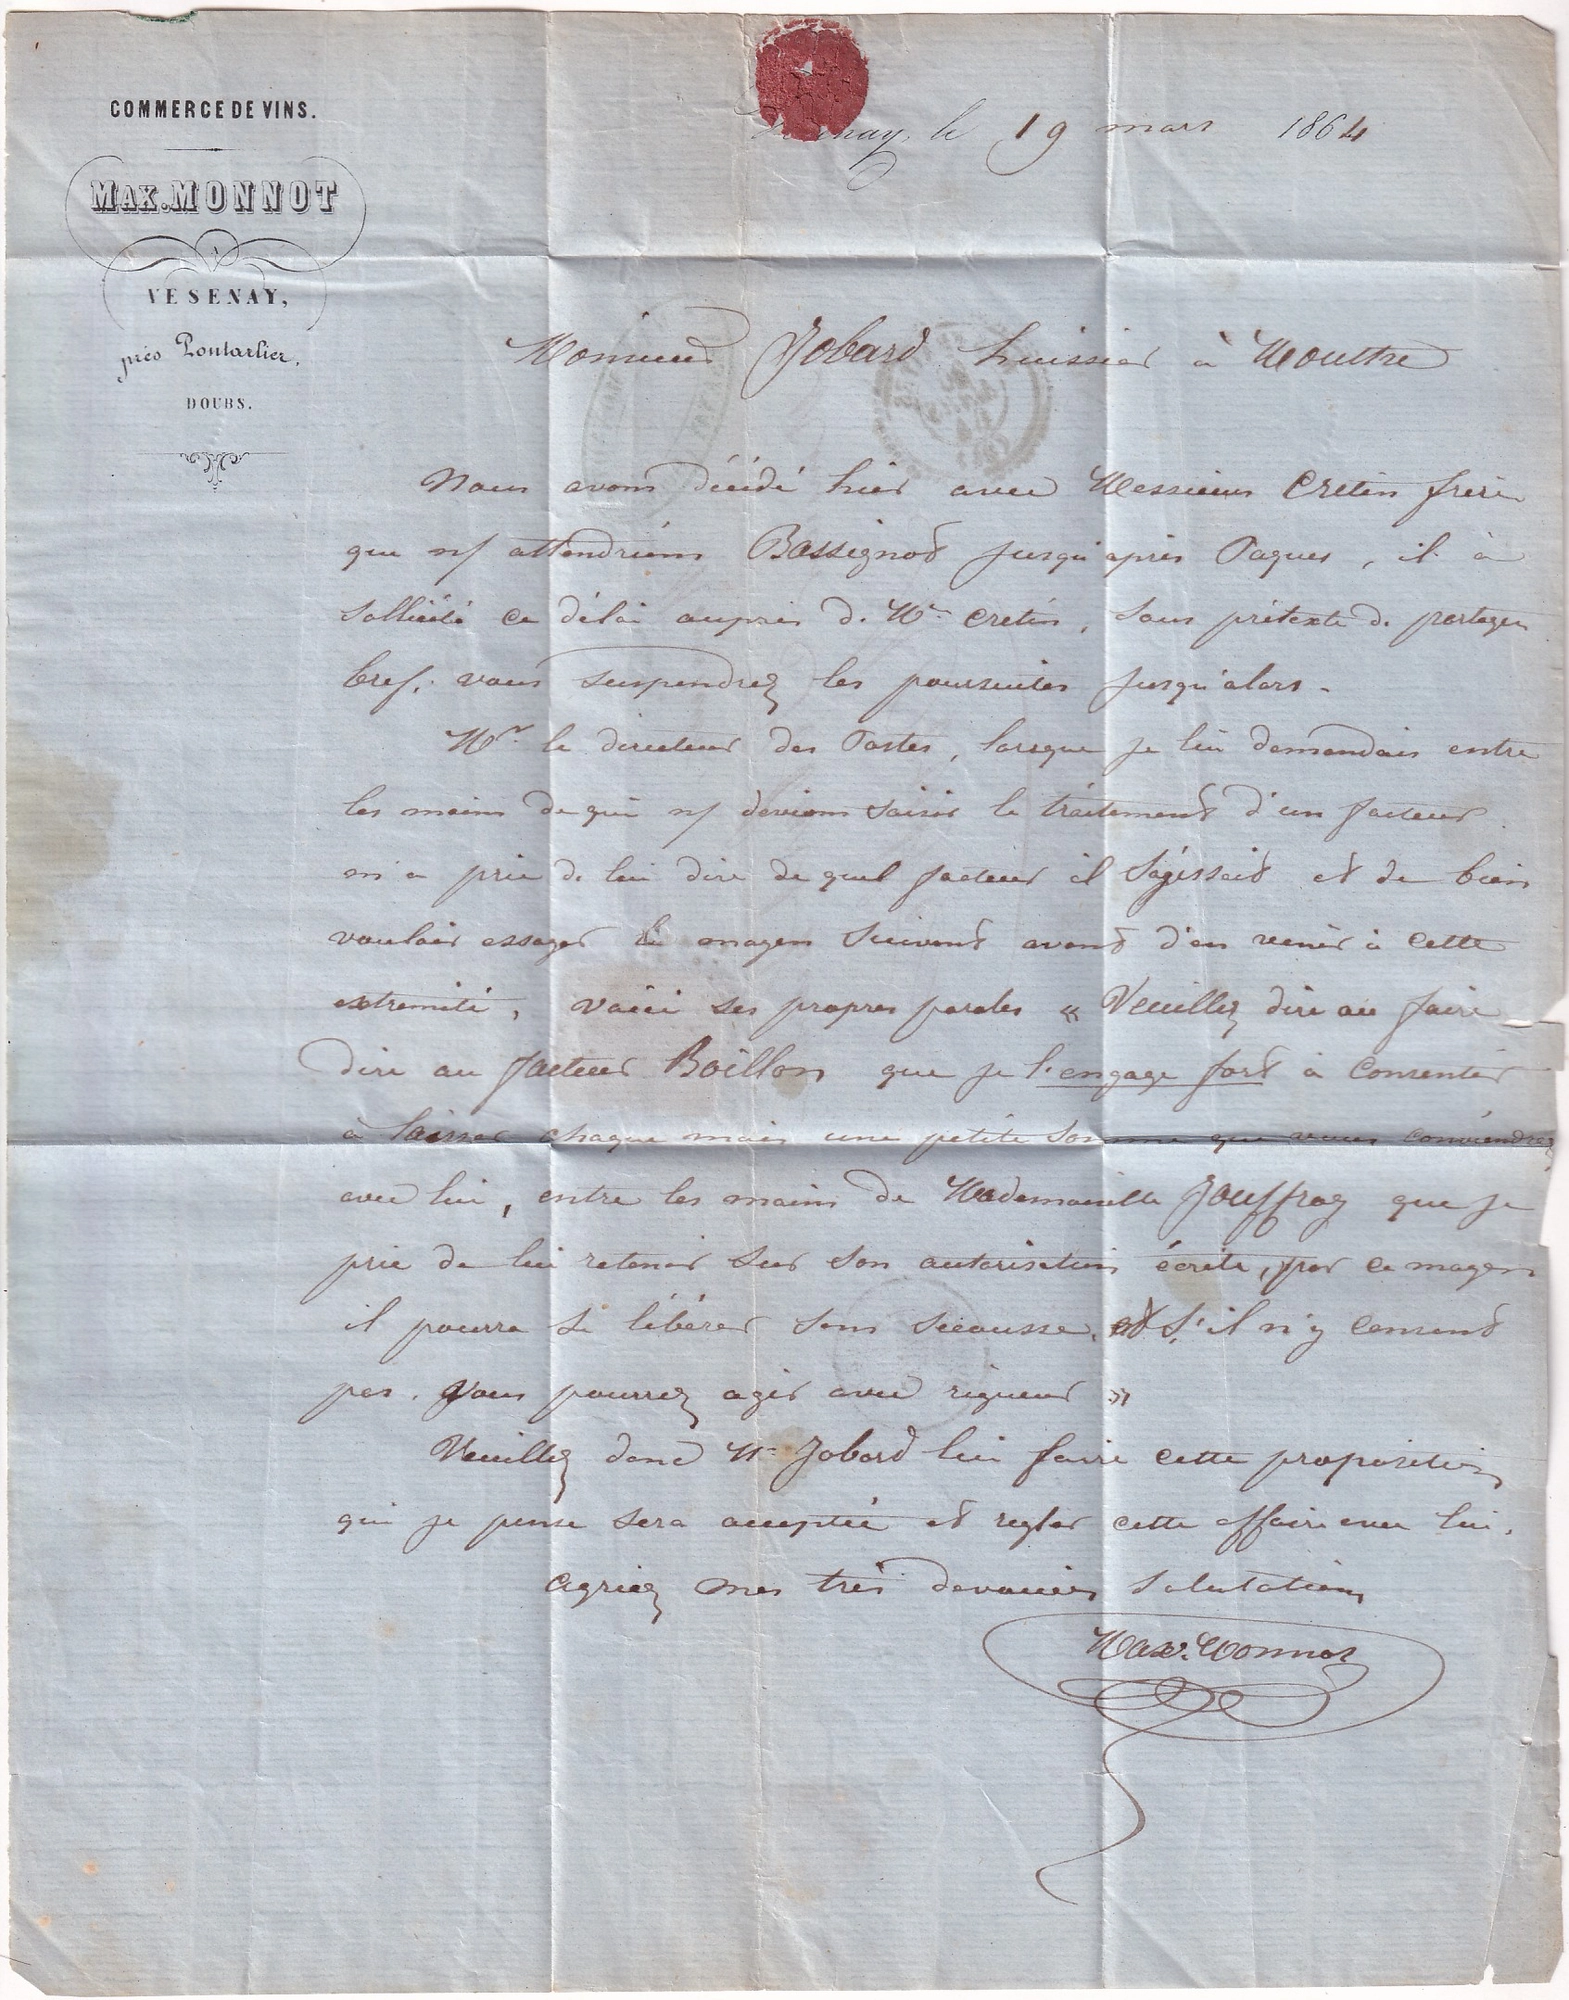 COMMERCE DE VINS.
MAX. MONNOT
VESENAY,
près Pontarlier,
DOUBS.
le 19 mars 1864
Monsieur Jobard huissier à Mouthe
Nous avons décidé hier avec Messieurs Cretin frères
que n/ attendrions Bassignot jusqu'après Paques, il à
sollicité ce délai auprès de Mr. Cretin, sous prétexte de partages
bref. vous suspendrez les poursuites jusqu'alors.
Mr. le directeur des Postes, lorsque je lui demandais entre
les mains de qui n/ devions saisir le traitement d'un facteur
m'a prié de lui dire de quel facteur il s'agissait et de bien
vouloir essayer le moyen suivant avant d'en venir à cette
extremité, voici ses propres paroles « Veuillez dire ou faire
dire au facteur Boillon que je l'engage fort à consentir
à laisser chaque mois une petite somme que vous conviendrez
avec lui, entre les mains de Mademoiselle Jouffroy que je
prie de lui retenir sur son autorisation écrite, par ce moyen
il pourra se libérer sans secousse, et s'il n'y consent
pas. Vous pourrez agir avec rigueur »
Veuillez donc Mr. Jobard lui faire cette proposition
qui je pense sera acceptée et regler cette affaire avec lui.
Agréez mes très dévouées salutations
Max. Monnot